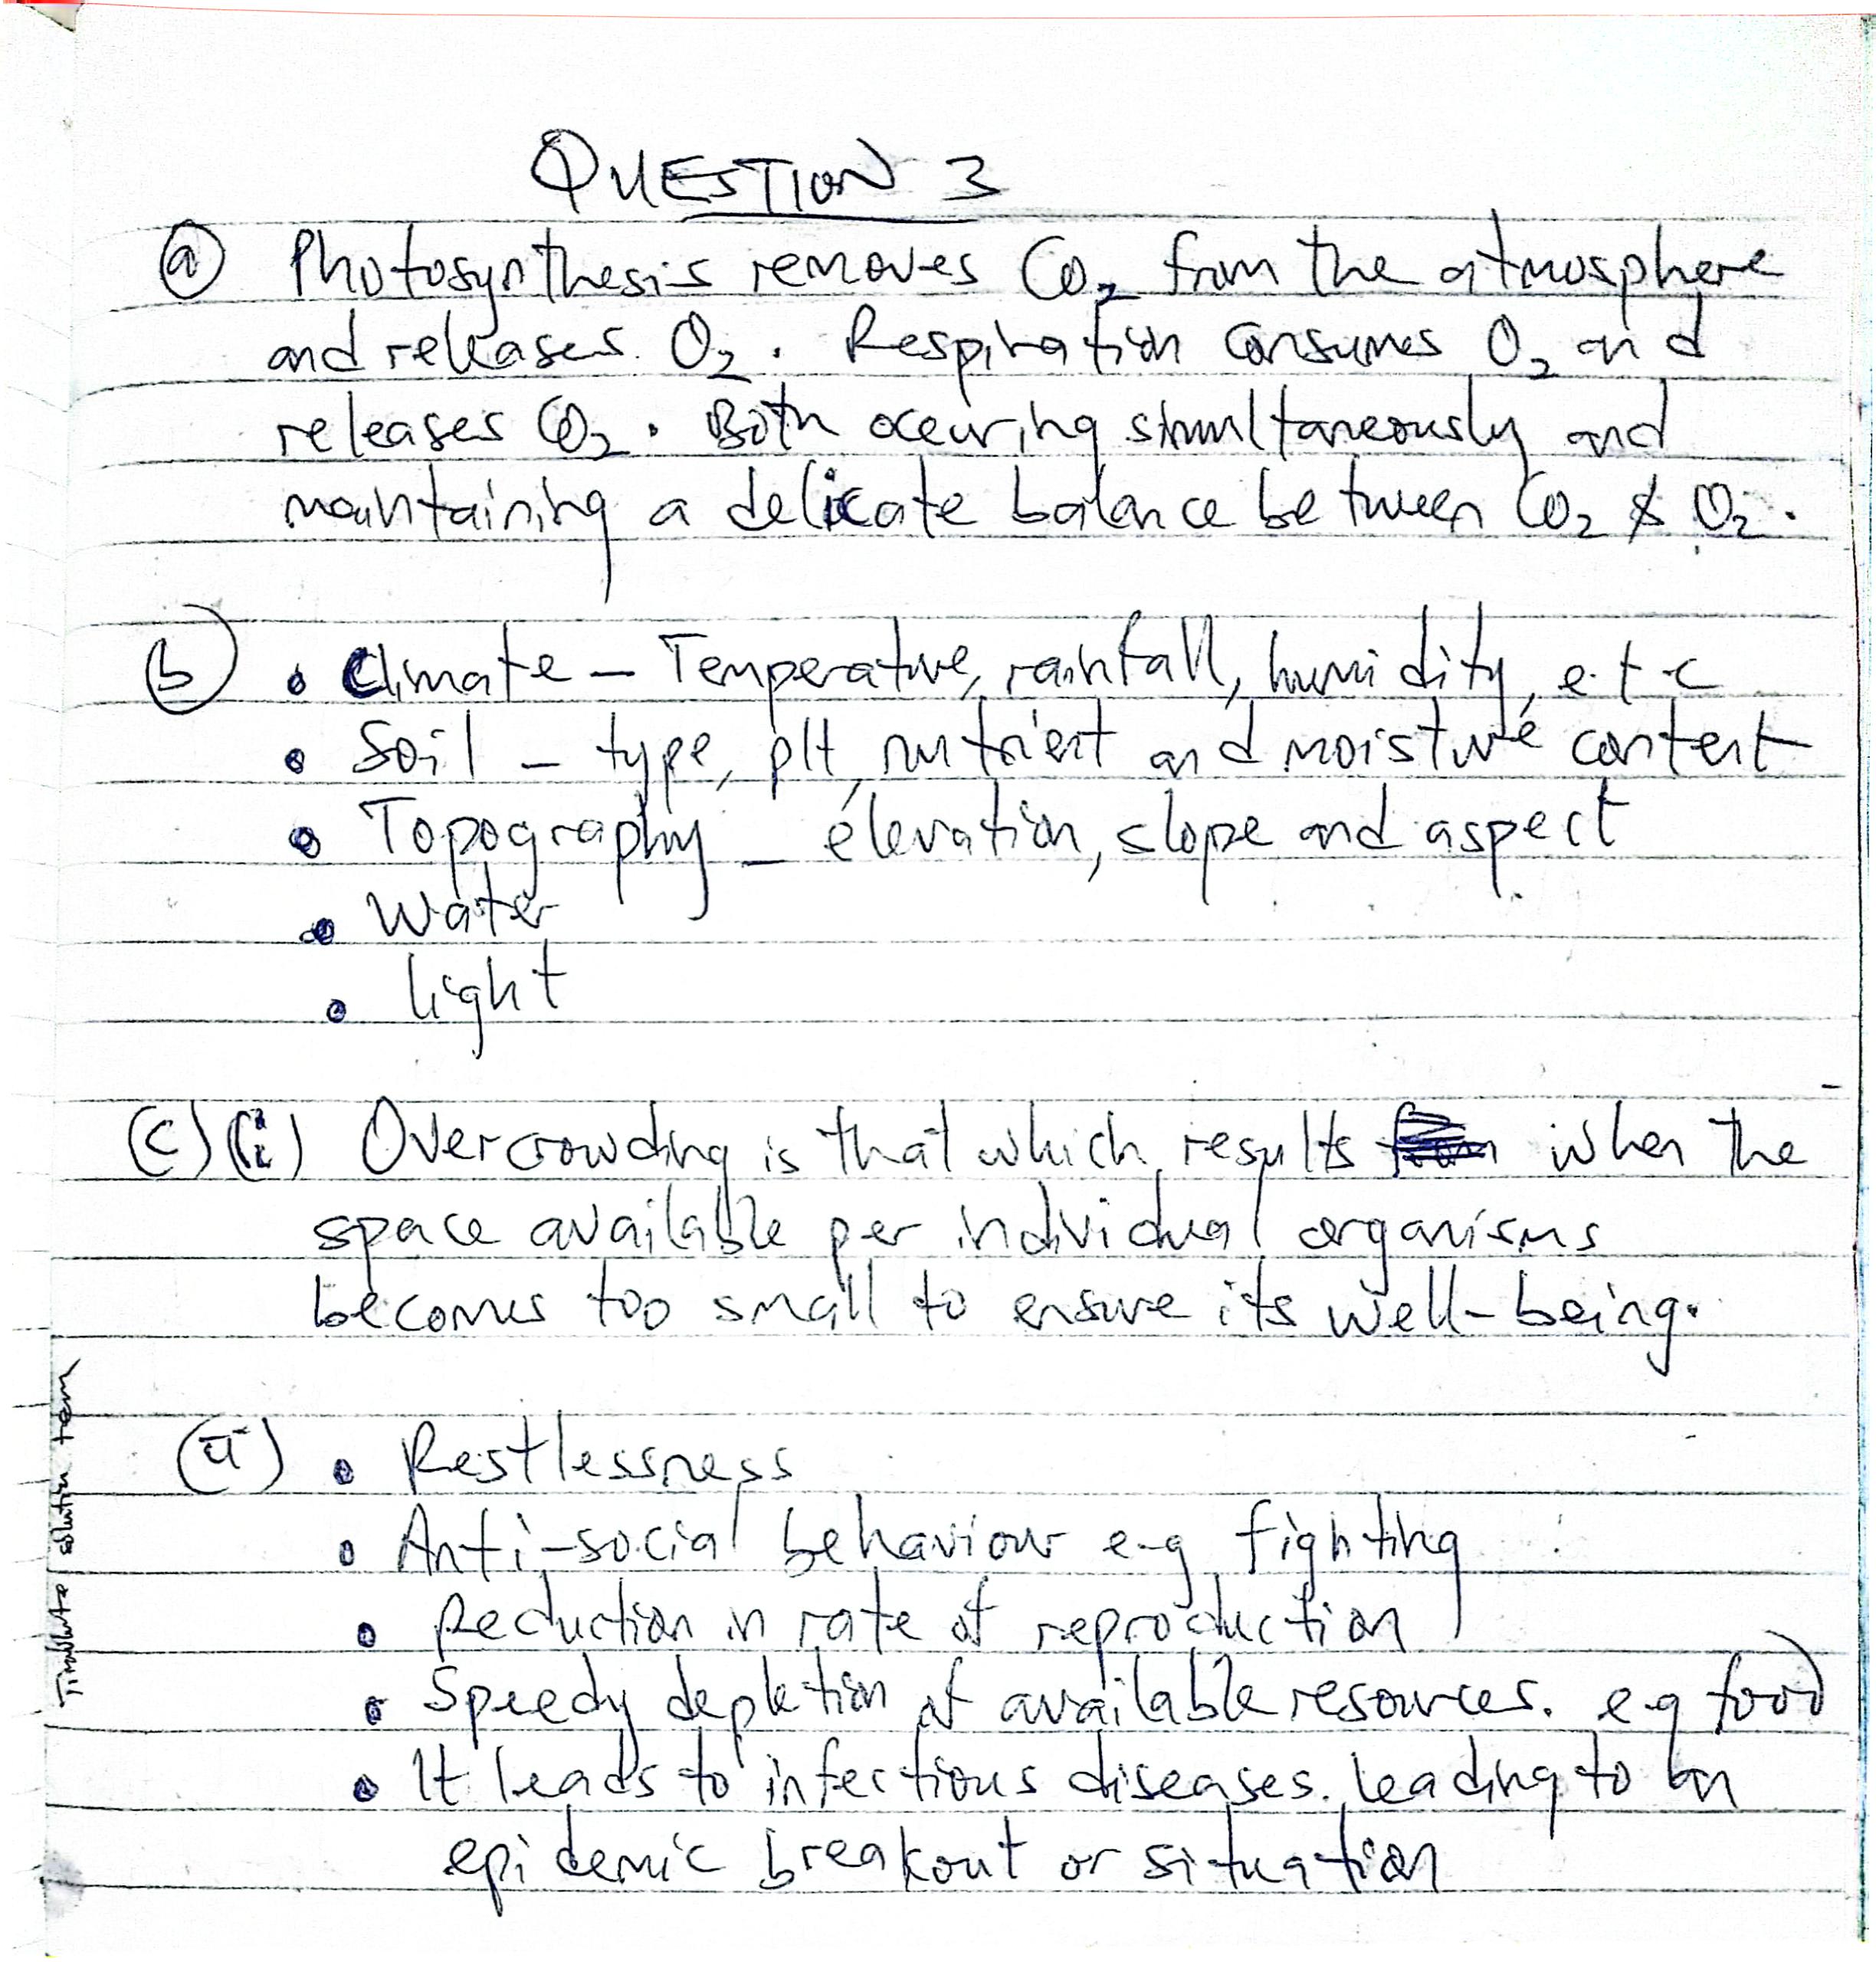 QUESTION 3
(a) Photosynthesis removes CO2 from the atmosphere
and releases O2. Respiration consumes O2 and
releases CO2. Both occuring simultaneously and
maintaining a delicate balance between CO2 & O2.
(b) • Climate – Temperature, rainfall, humidity, e.t.c
• Soil – type, pH, nutrient and moisture content
• Topography – elevation, slope and aspect
• Water
• light
(c) (i) Overcrowding is that which results when the
space available per individual organisms
becomes too small to ensure its well-being.
(ii) • Restlessness
• Anti-social behaviour e.g fighting
• Reduction in rate of reproduction
• Speedy depletion of available resources. e.g food
• It leads to infectious diseases. leading to an
epidemic breakout or situation
solution team